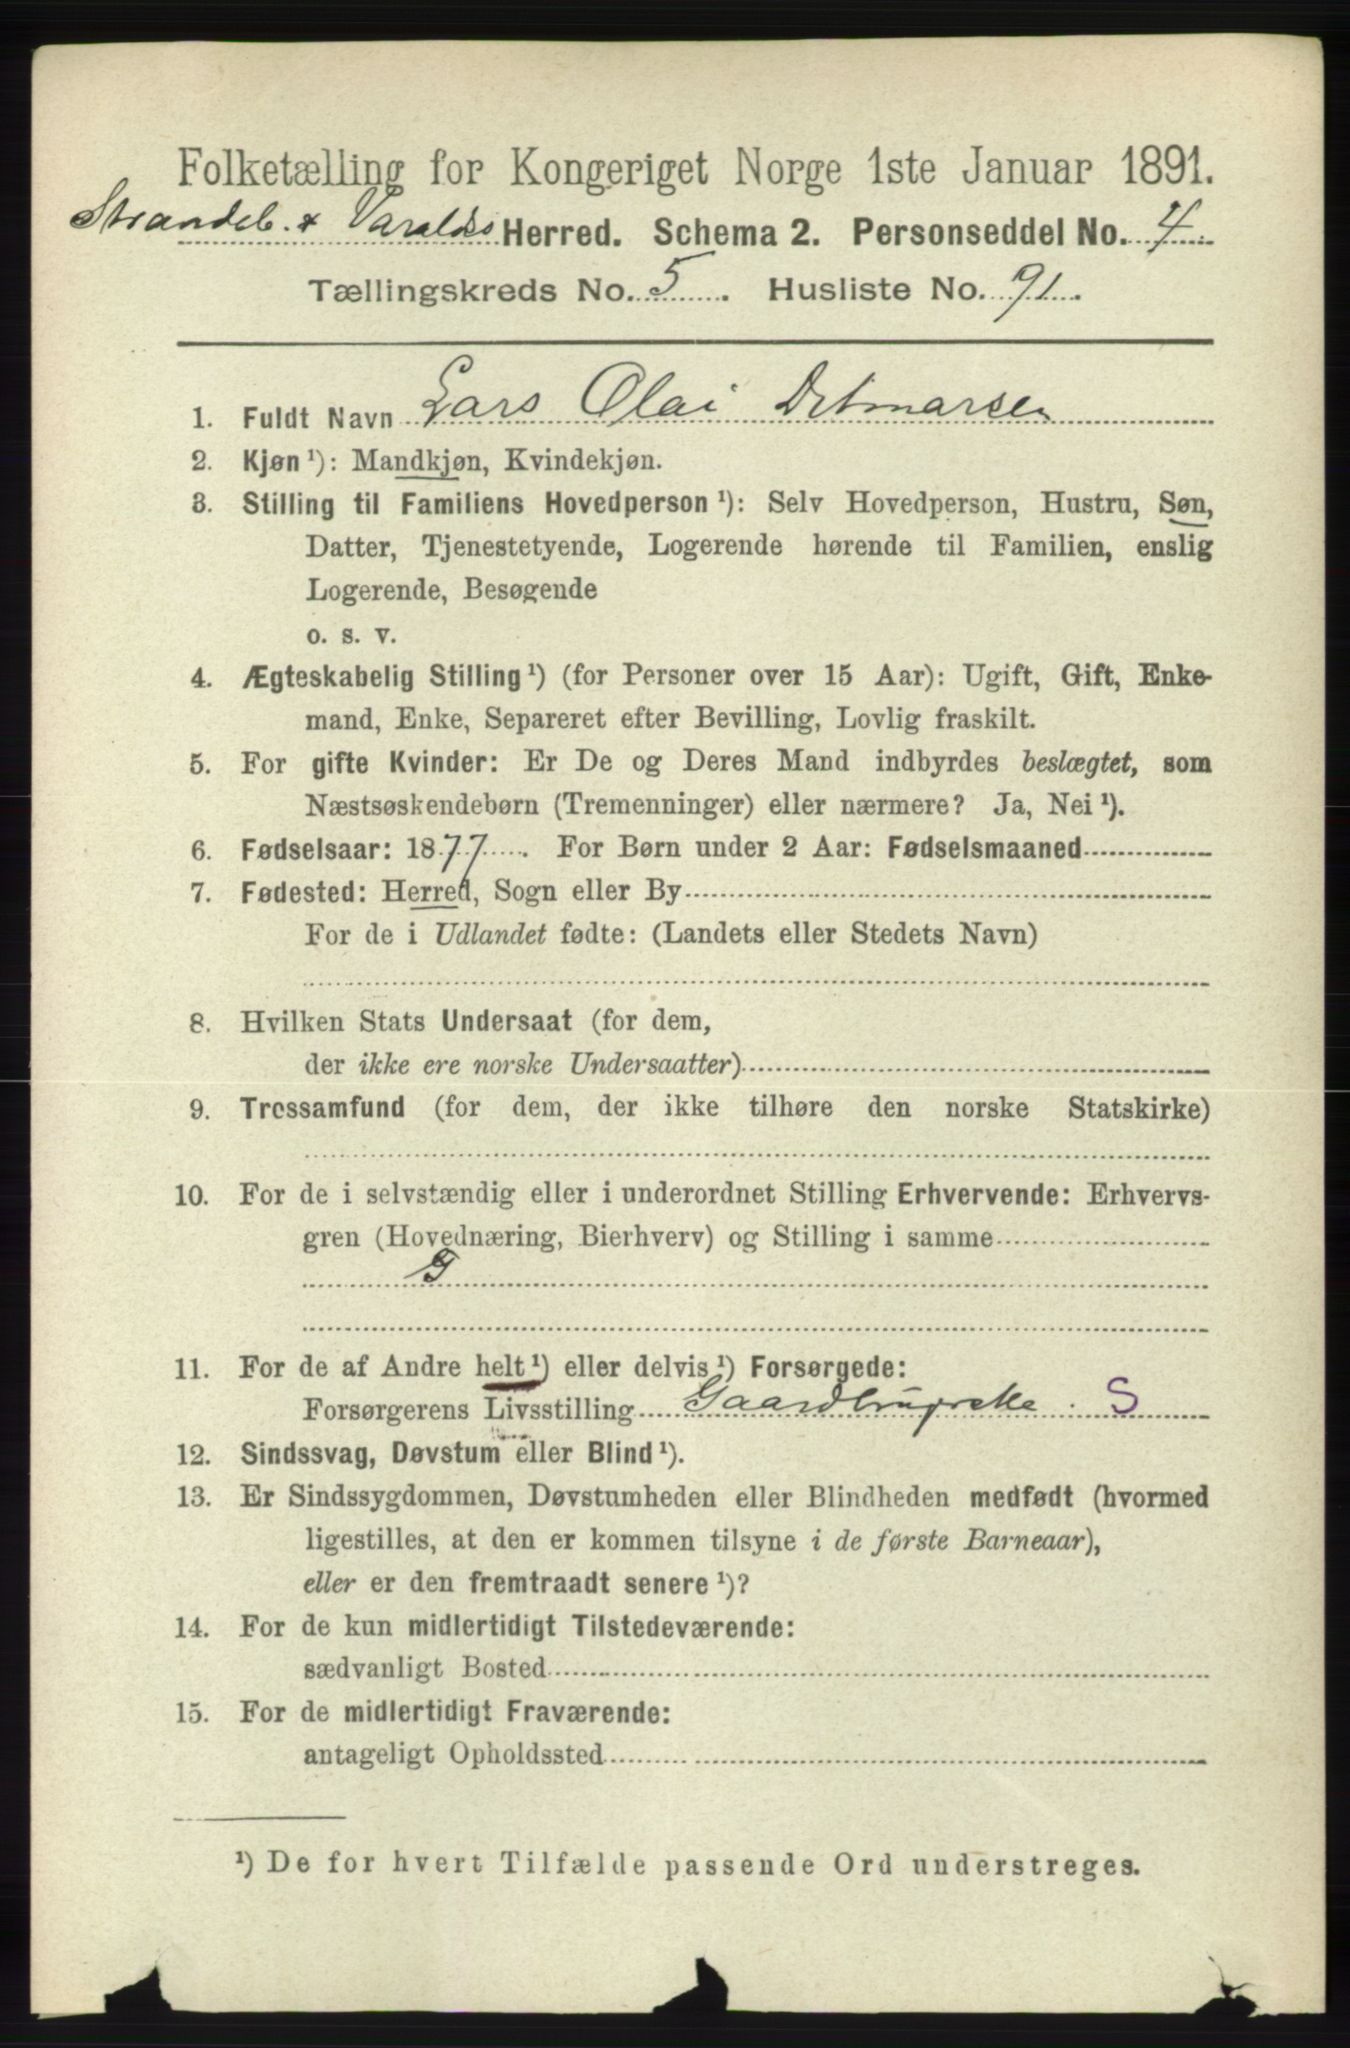 Folketælling for Kongeriget Norge 1ste Januar 1891.
Strandeb. & Varalds Herred. Schema 2. Personseddel No. 4
Tællingskreds No. 5. Husliste No. 91.
1. Fuldt Navn Lars Olai Ditmarsen
2. Kjøn ¹): Mandkjøn, Kvindekjøn.
3. Stilling til Familiens Hovedperson ¹): Selv Hovedperson, Hustru, Søn,
Datter, Tjenestetyende, Logerende hørende til Familien, enslig
Logerende, Besøgende
o. s. v.
4. Ægteskabelig Stilling ¹) (for Personer over 15 Aar): Ugift, Gift, Enke-
mand, Enke, Separeret efter Bevilling, Lovlig fraskilt.
5. For gifte Kvinder: Er De og Deres Mand indbyrdes beslægtet, som
Næstsøskendebørn (Tremenninger) eller nærmere? Ja, Nei ¹).
6. Fødselsaar: 1877. For Børn under 2 Aar: Fødselsmaaned
7. Fødested: Herred, Sogn eller By
For de i Udlandet fødte: (Landets eller Stedets Navn)
8. Hvilken Stats Undersaat (for dem,
der ikke ere norske Undersaatter)
9. Trossamfund (for dem, der ikke tilhøre den norske Statskirke)
10. For de i selvstændig eller i underordnet Stilling Erhvervende: Erhvervs-
gren (Hovednæring, Bierhverv) og Stilling i samme
G
11. For de af Andre helt ¹) eller delvis ¹) Forsørgede:
Forsørgerens Livsstilling S
12. Sindssvag, Døvstum eller Blind ¹).
13. Er Sindssygdommen, Døvstumheden eller Blindheden medfødt (hvormed
ligestilles, at den er kommen tilsyne i de første Barneaar),
eller er den fremtraadt senere ¹)?
14. For de kun midlertidigt Tilstedeværende:
sædvanligt Bosted
15. For de midlertidigt Fraværende:
antageligt Opholdssted
¹) De for hvert Tilfælde passende Ord understreges.